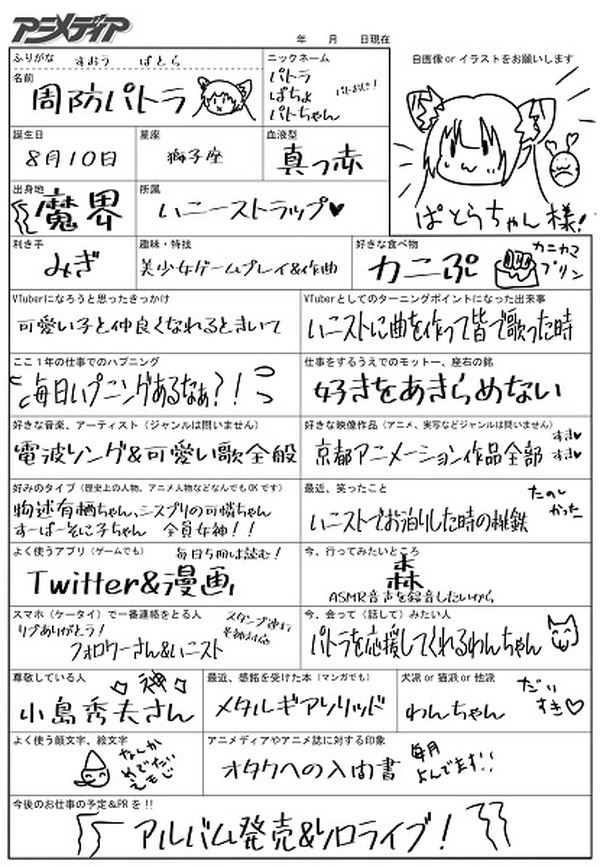 アニメディア
年 月 日現在
ふりがな すおう ぱとら
名前
周防パトラ
ニックネーム
パトラ
ぱちょ
パトちゃん
自画像 or イラストをお願いします
ぱとらちゃん様!
誕生日
8月10日
星座
獅子座
血液型
真っ赤
出身地
魔界
所属
いにーストラップ♥
利き手
みぎ
趣味・特技
美少女ゲームプレイ&作曲
好きな食べ物
カニぷ
カニカマ
プリン
VTuberになろうと思ったきっかけ
可愛い子と仲良くなれるときいて
VTuberとしてのターニングポイントになった出来事
いにストに曲を作って皆で歌った時
ここ1年の仕事でのハプニング
毎日ハプニングあるなぁ?!
仕事をするうえでのモットー、座右の銘
好きをあきらめない
好きな音楽、アーティスト(ジャンルは問いません)
電波ソング&可愛い歌全般
好きな映像作品(アニメ、実写などジャンルは問いません)
京都アニメーション作品全部
すき♥
すき♥
好みのタイプ(歴史上の人物、アニメ人物などなんでもOKです)
物述有栖ちゃん、シスプリの可憐ちゃん
すーぱーそに子ちゃん 全員女神!!
最近、笑ったこと
いにストでお泊りした時の桃鉄
たのし
かった
よく使うアプリ(ゲームでも)
毎日5冊は読む!
Twitter&漫画
今、行ってみたいところ
森
ASMR音声を録音したいから
スマホ(ケータイ)で一番連絡をとる人
リプありがとう!
フォロワーさん&いにスト
スタンプ連打
今、会って(話して)みたい人
パトラを応援してくれるわんちゃん
尊敬している人
神
小島秀夫さん
最近、感銘を受けた本(マンガでも)
メタルギアソリッド
犬派 or 猫派 or 他派
わんちゃん
だい
すき♡
よく使う顔文字、絵文字
なんか
めでたい
えもじ
アニメディアやアニメ誌に対する印象
オタクへの入門書
毎月
よんでます!!
今後のお仕事の予定&PRを!!
アルバム発売&ソロライブ!